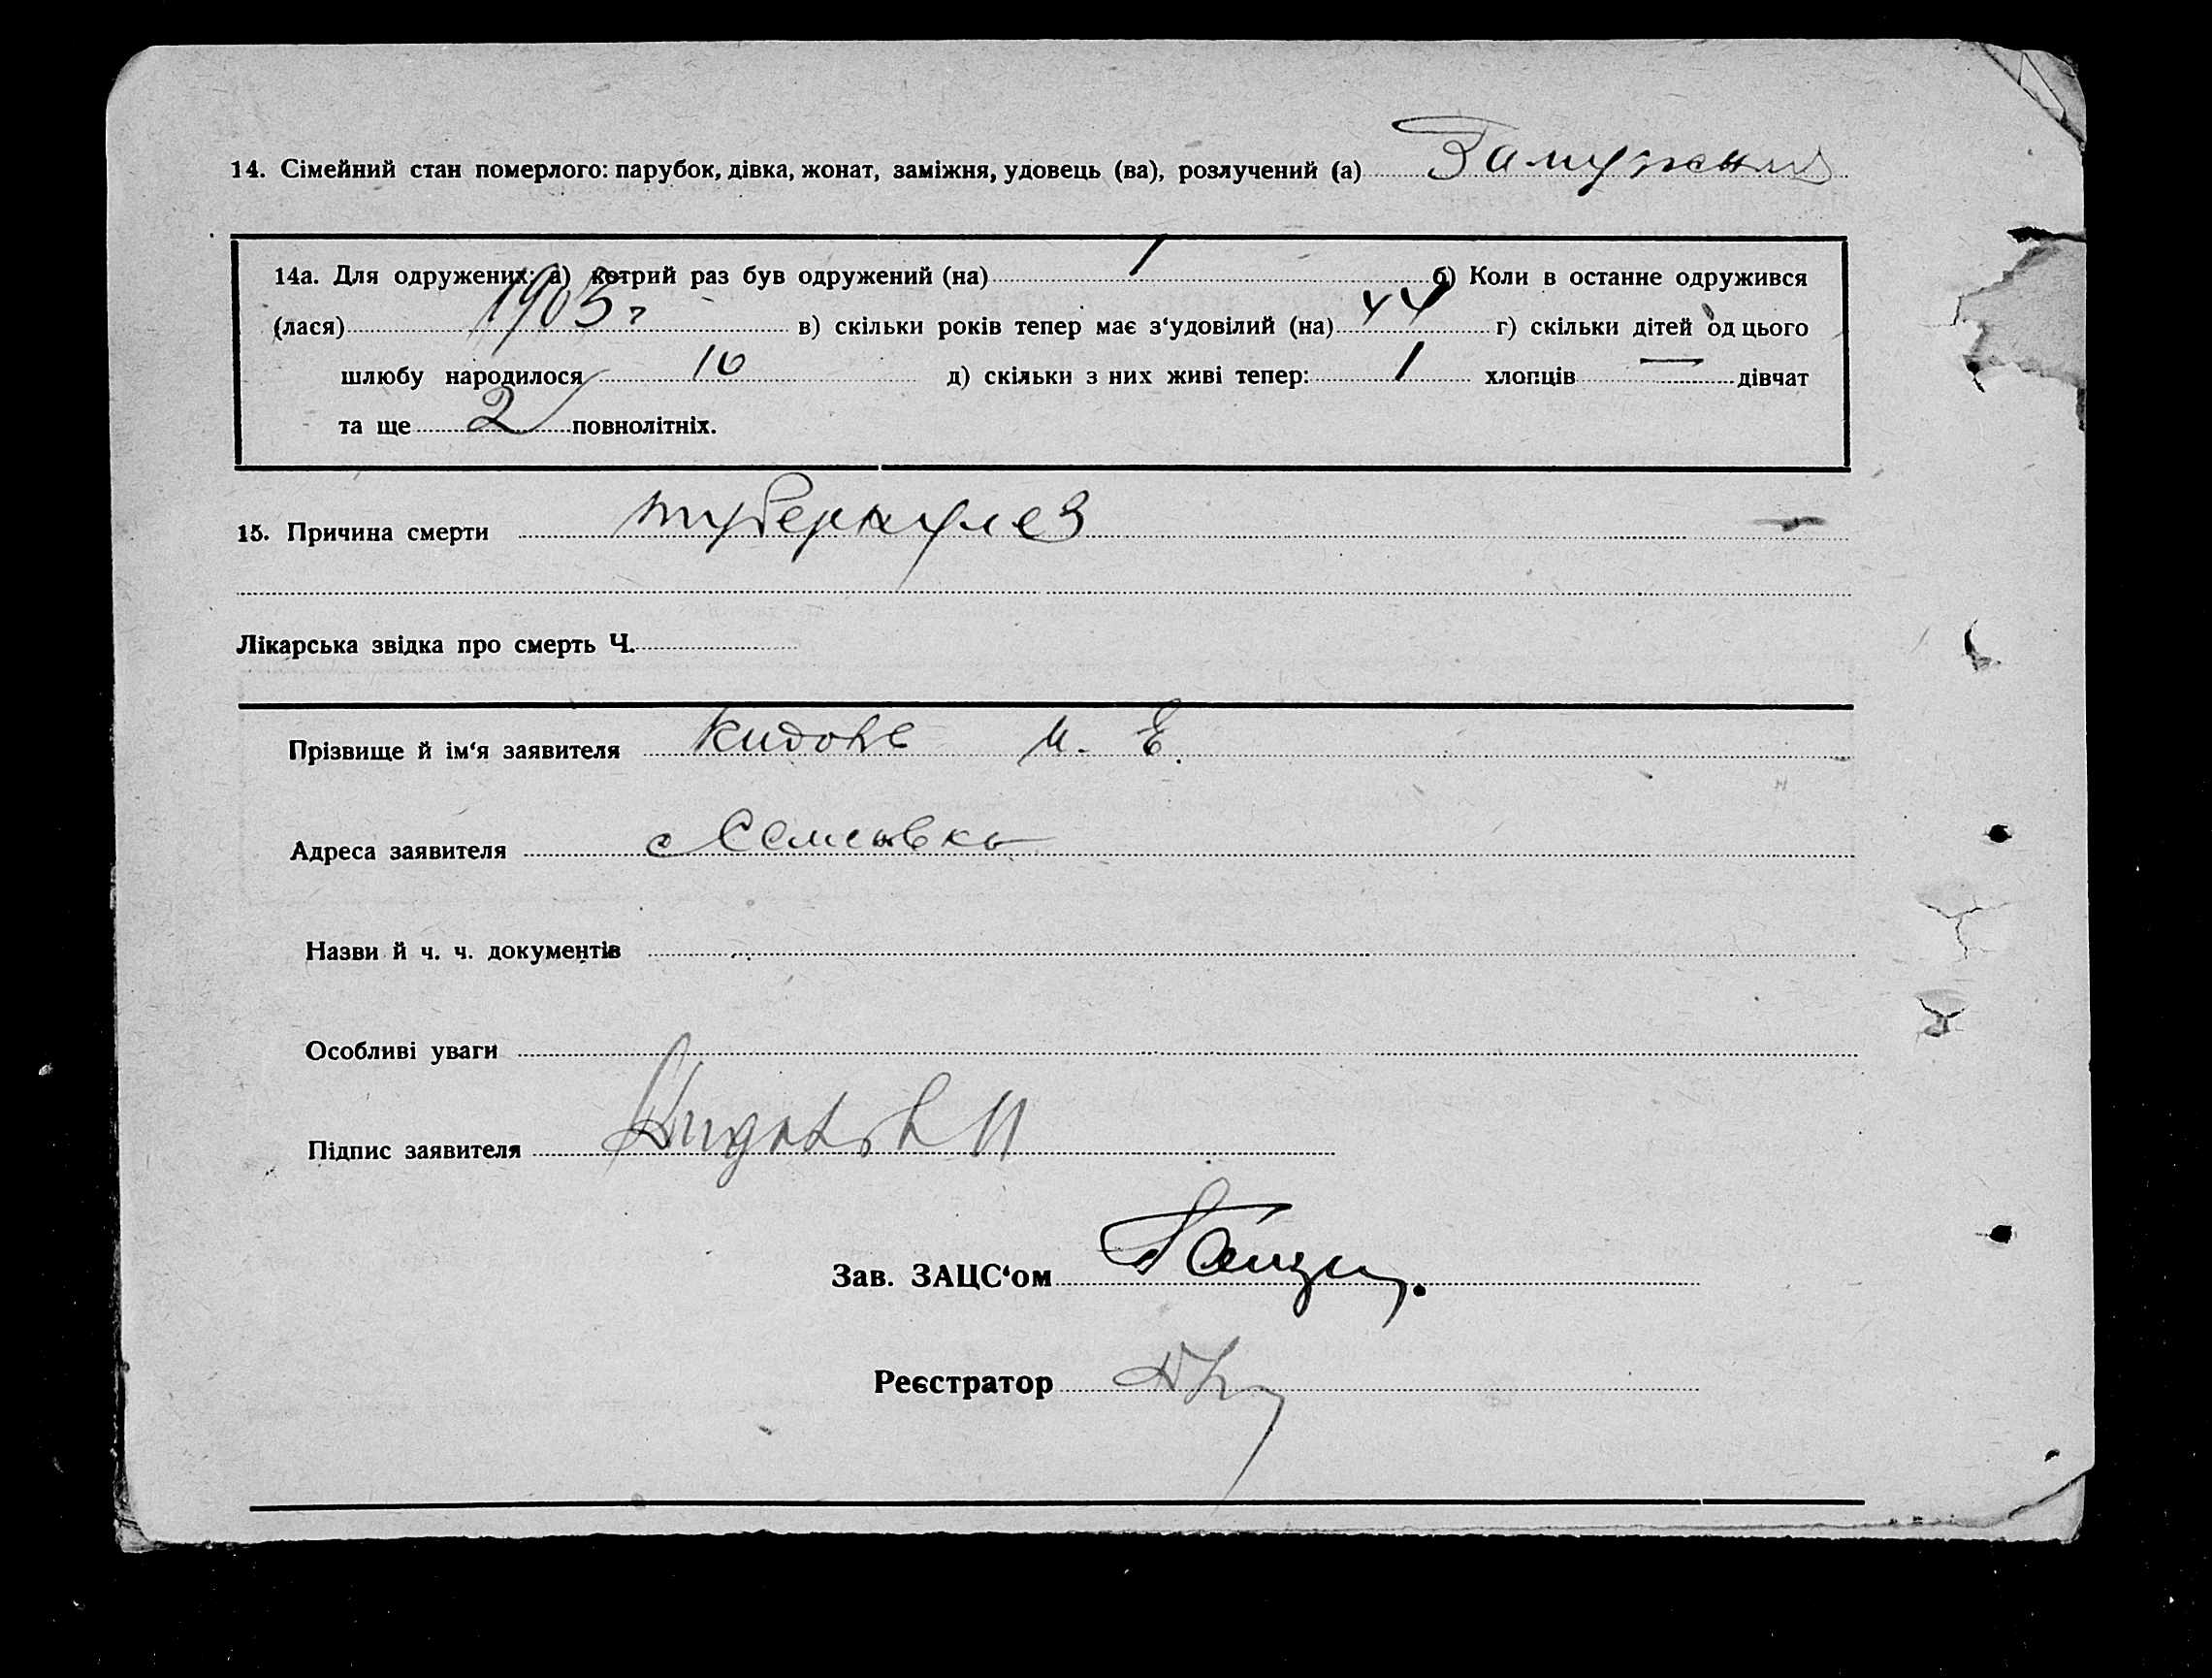 14. Сімейний стан померлого: парубок, дівка, жонат, заміжня, удовець (ва), розлучений (а) Замужняя
14а. Для одружених: а) котрий раз був одружений (на) 1 б) Коли в останнє одружився
(лася) 1903 г в) скільки років тепер має з‘удовілий (на) 44 г) скільки дітей од цього
шлюбу народилося 10 д) скільки з них живі тепер: 1 хлопців — дівчат
та ще 2 повнолітніх.
15. Причина смерти туберкулез
Лікарська звідка про смерть Ч.
Прізвище й ім‘я заявителя И. Е.
Адреса заявителя с
Назви й ч. ч. документів
Особливі уваги
Підпис заявителя
Зав. ЗАЦС‘ом
Реєстратор